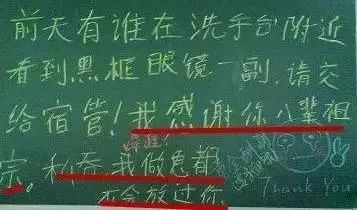 前天有谁在洗手台附近
看到黑框眼镜一副,请交
给宿管!我感谢你八辈祖
宗。私吞我做鬼都
不会放过你
Thank You